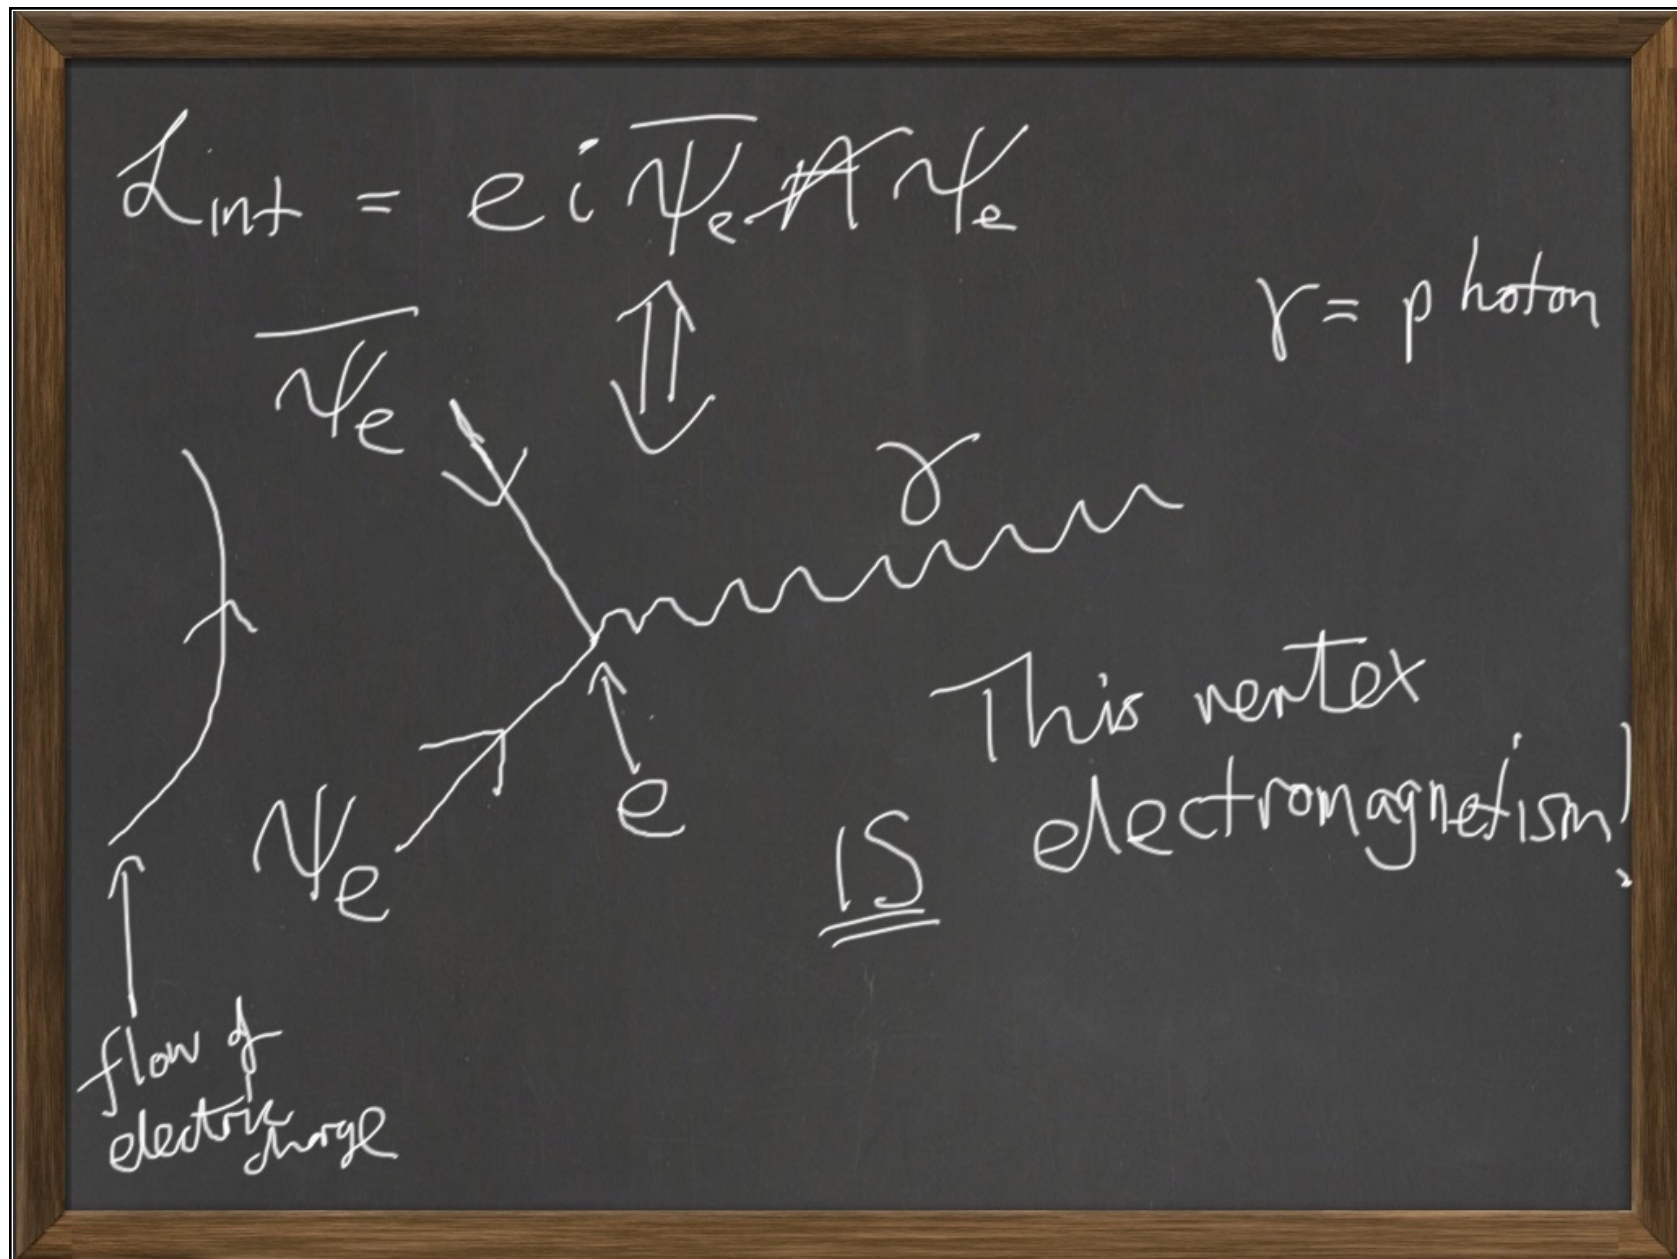 ℒint = e i ψ̅e A̸ ψe
γ = photon
ψ̅e
γ
This vertex
IS electromagnetism!
e
ψe
flow of
electric
charge